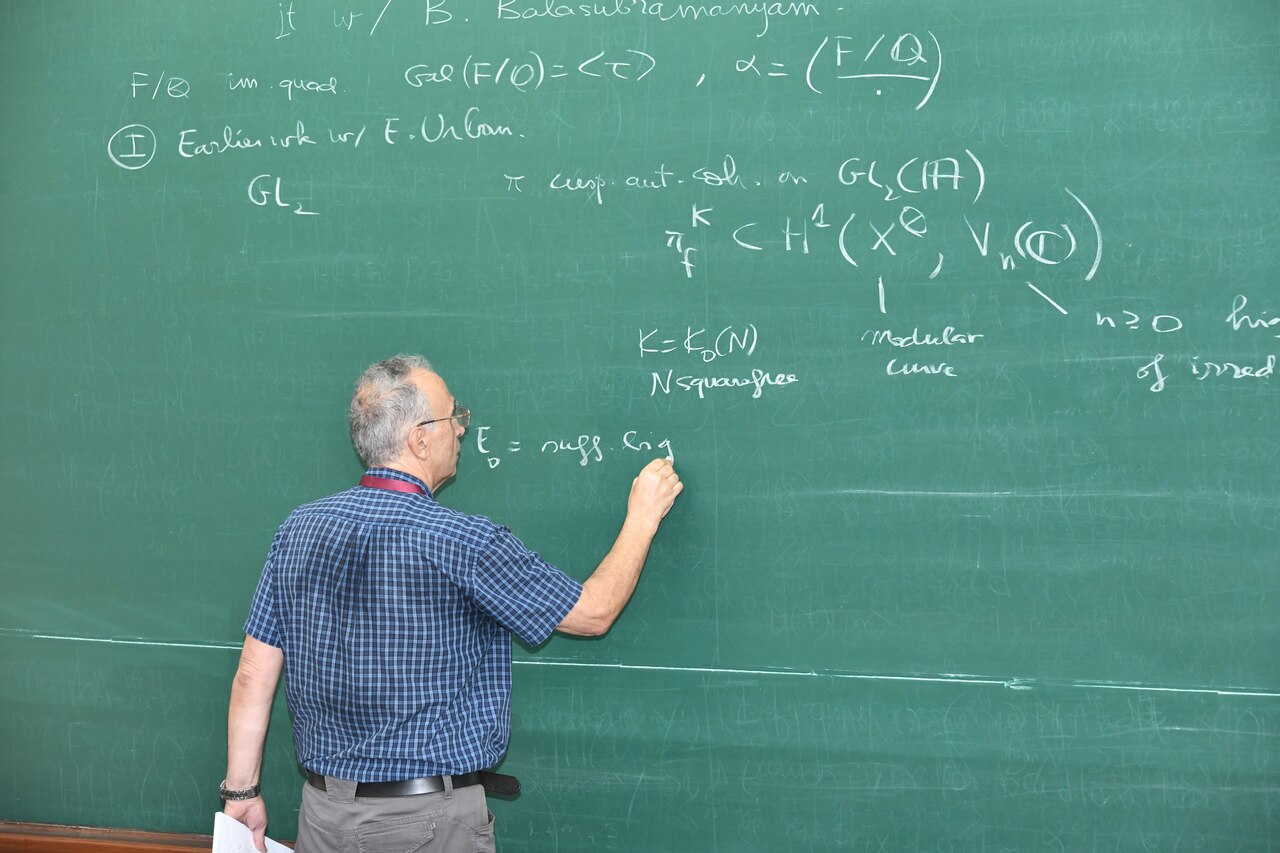 jt w/ B. Balasubramanyam.
F/Q im. quad. Gal(F/Q)=<τ> , α=(F/Q / ·)
I Earlier wk w/ E. Urban.
GL₂ π cusp. aut. coh. on GL₂(A)
π_f^K ⊂ H¹(X^Q, V_n(C))
K=K₀(N) modular n≥0
N squarefree curve of irred
E₀ = suff. big